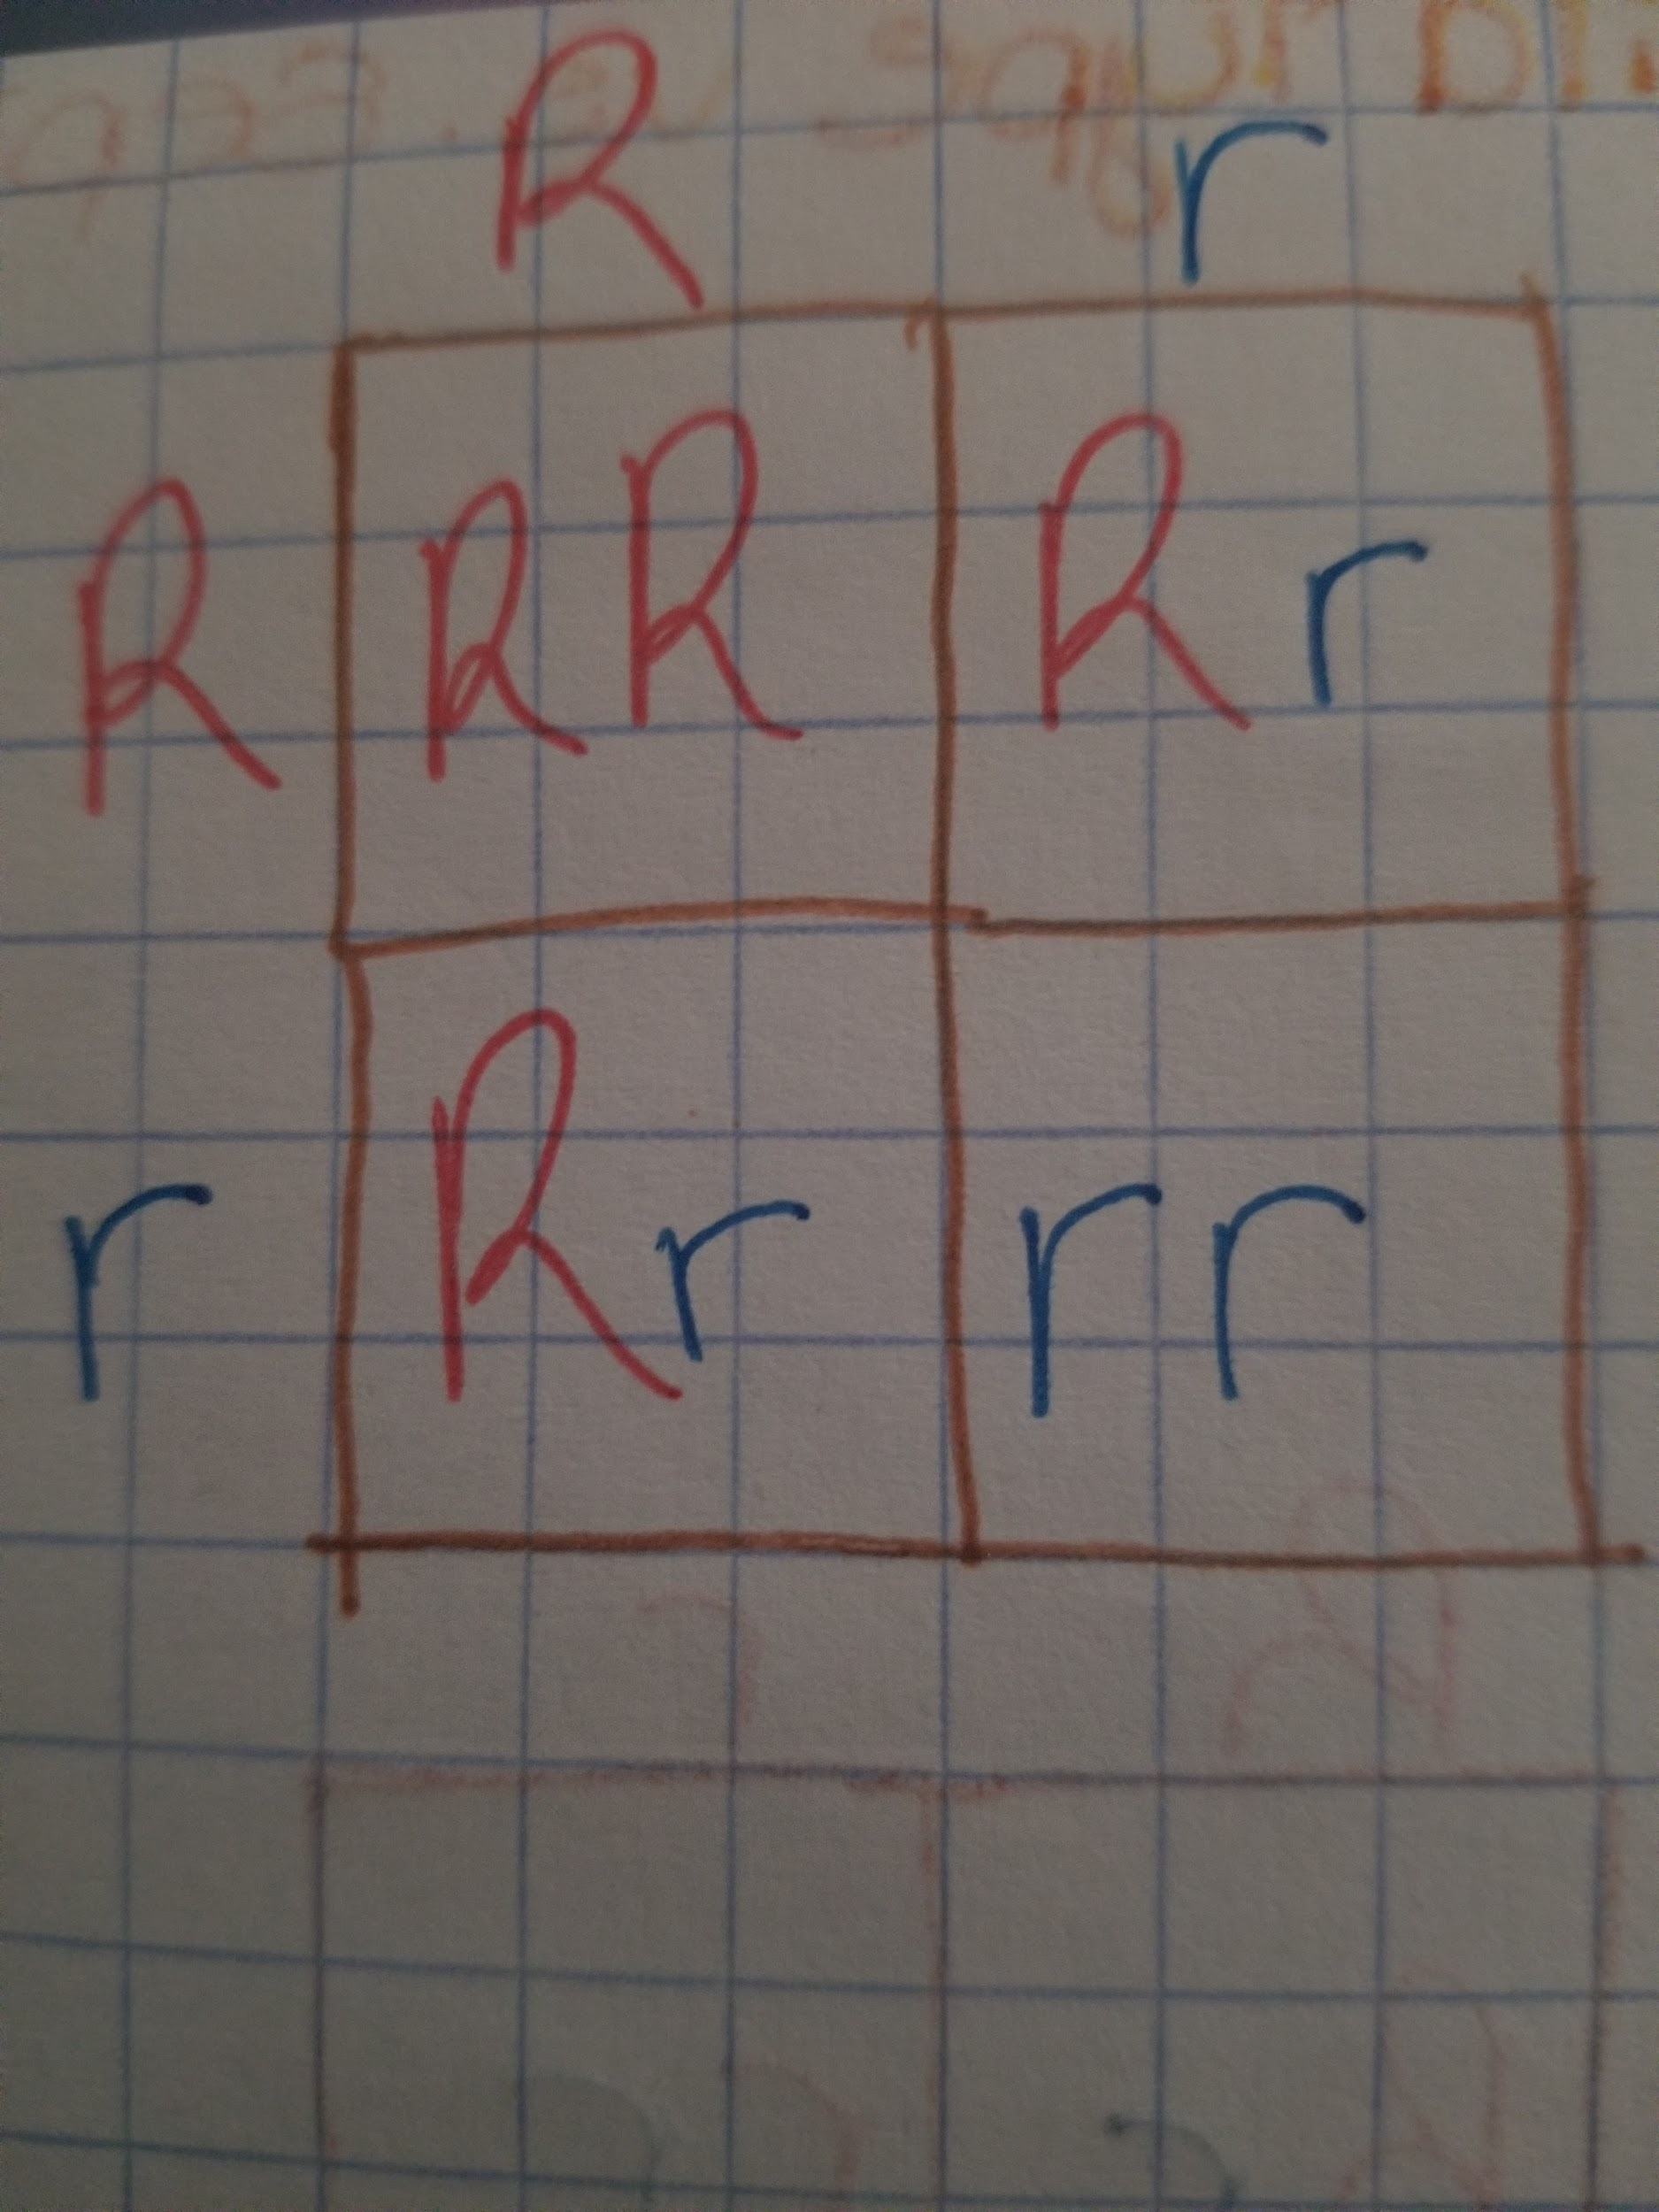 R r
R RR Rr
r Rr rr